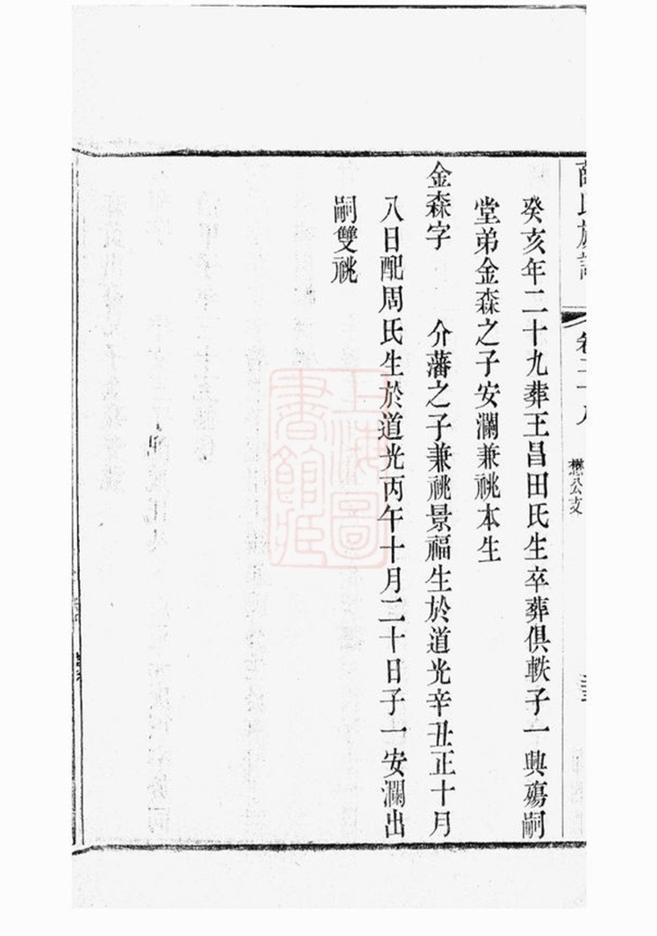 癸亥年二十九葬王昌田氏生卒葬俱軼子一興殤嗣
堂弟金森之子安瀾兼祧本生
金森字　介藩之子兼祧景福生於道光辛丑正十月
八日配周氏生於道光丙午十月二十日子一安瀾出
嗣雙祧
懋公支
上海圖書館藏